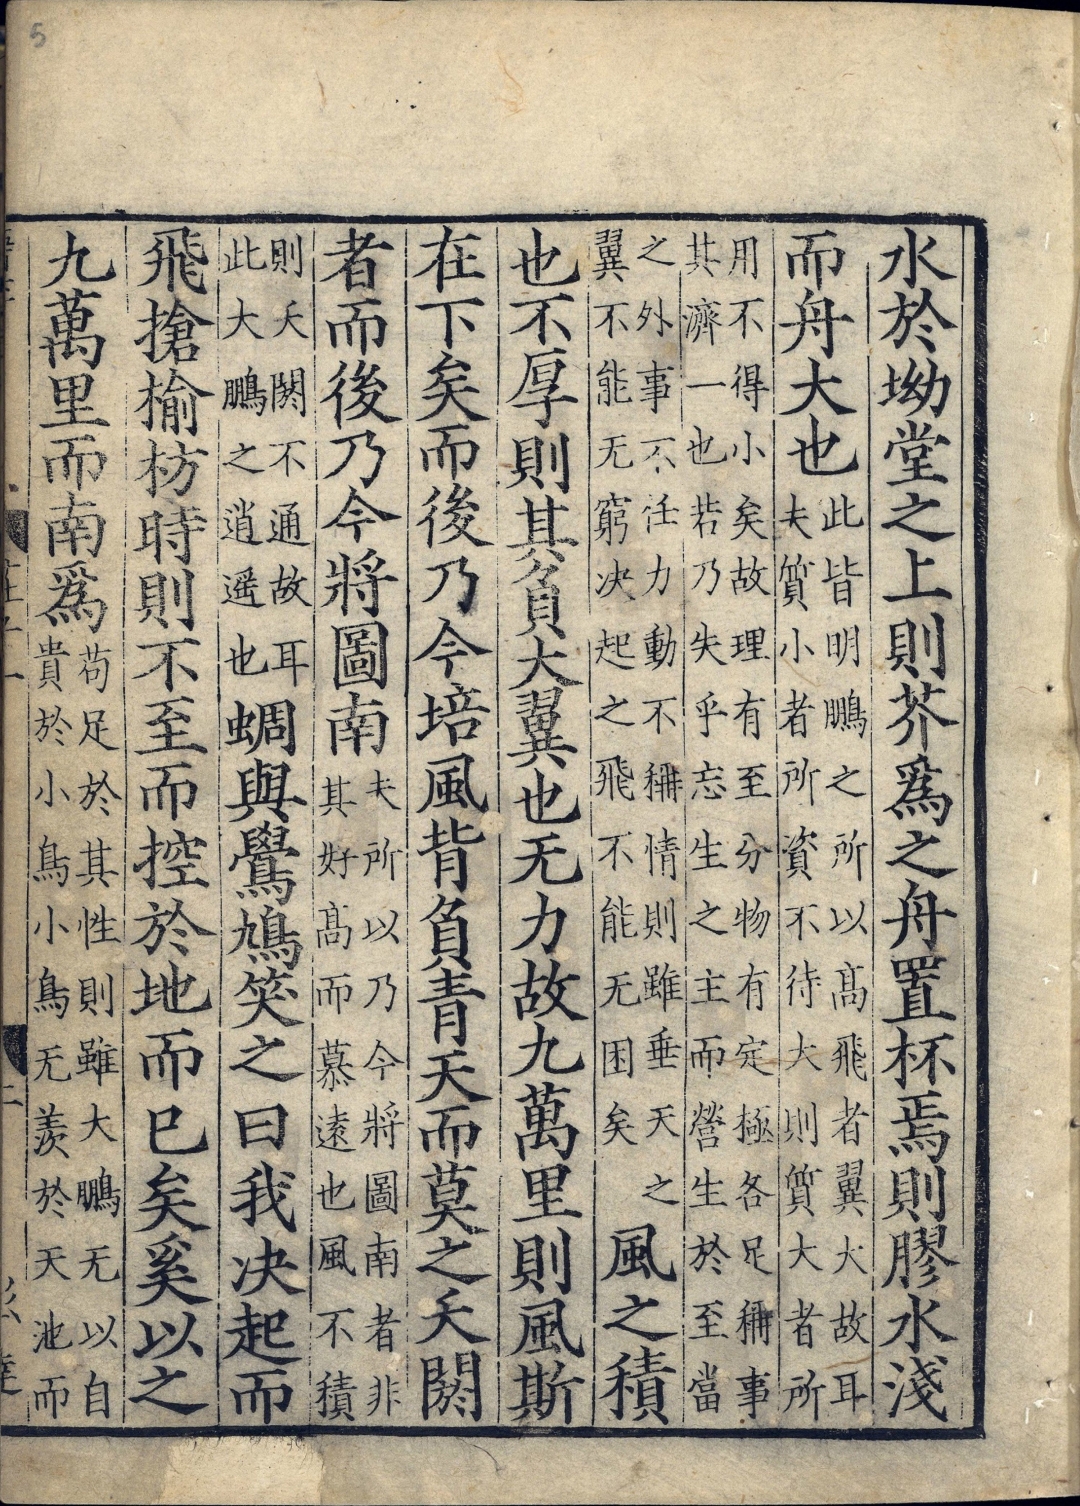 水於坳堂之上則芥爲之舟置杯焉則膠水淺
而舟大也此皆明鵬之所以髙飛者翼大故耳夫質小者所資不待大則質大者所
用不得小矣故理有至分物有定極各足稱事其濟一也若乃失乎忘生之主而營生於至當
之外事不任力動不稱情則雖垂天之翼不能无窮决起之飛不能无困矣風之積
也不厚則其負大翼也无力故九萬里則風斯
在下矣而後乃今培風背負青天而莫之夭閼
者而後乃今將圖南夫所以乃今將圖南者非其好髙而慕遠也風不積
則夭閼不通故耳此大鵬之逍遥也蜩與鷽鳩笑之曰我决起而
飛搶榆枋時則不至而控於地而已矣奚以之
九萬里而南爲苟足於其性則雖大鵬无以自貴於小鳥小鳥无羡於天池而
5